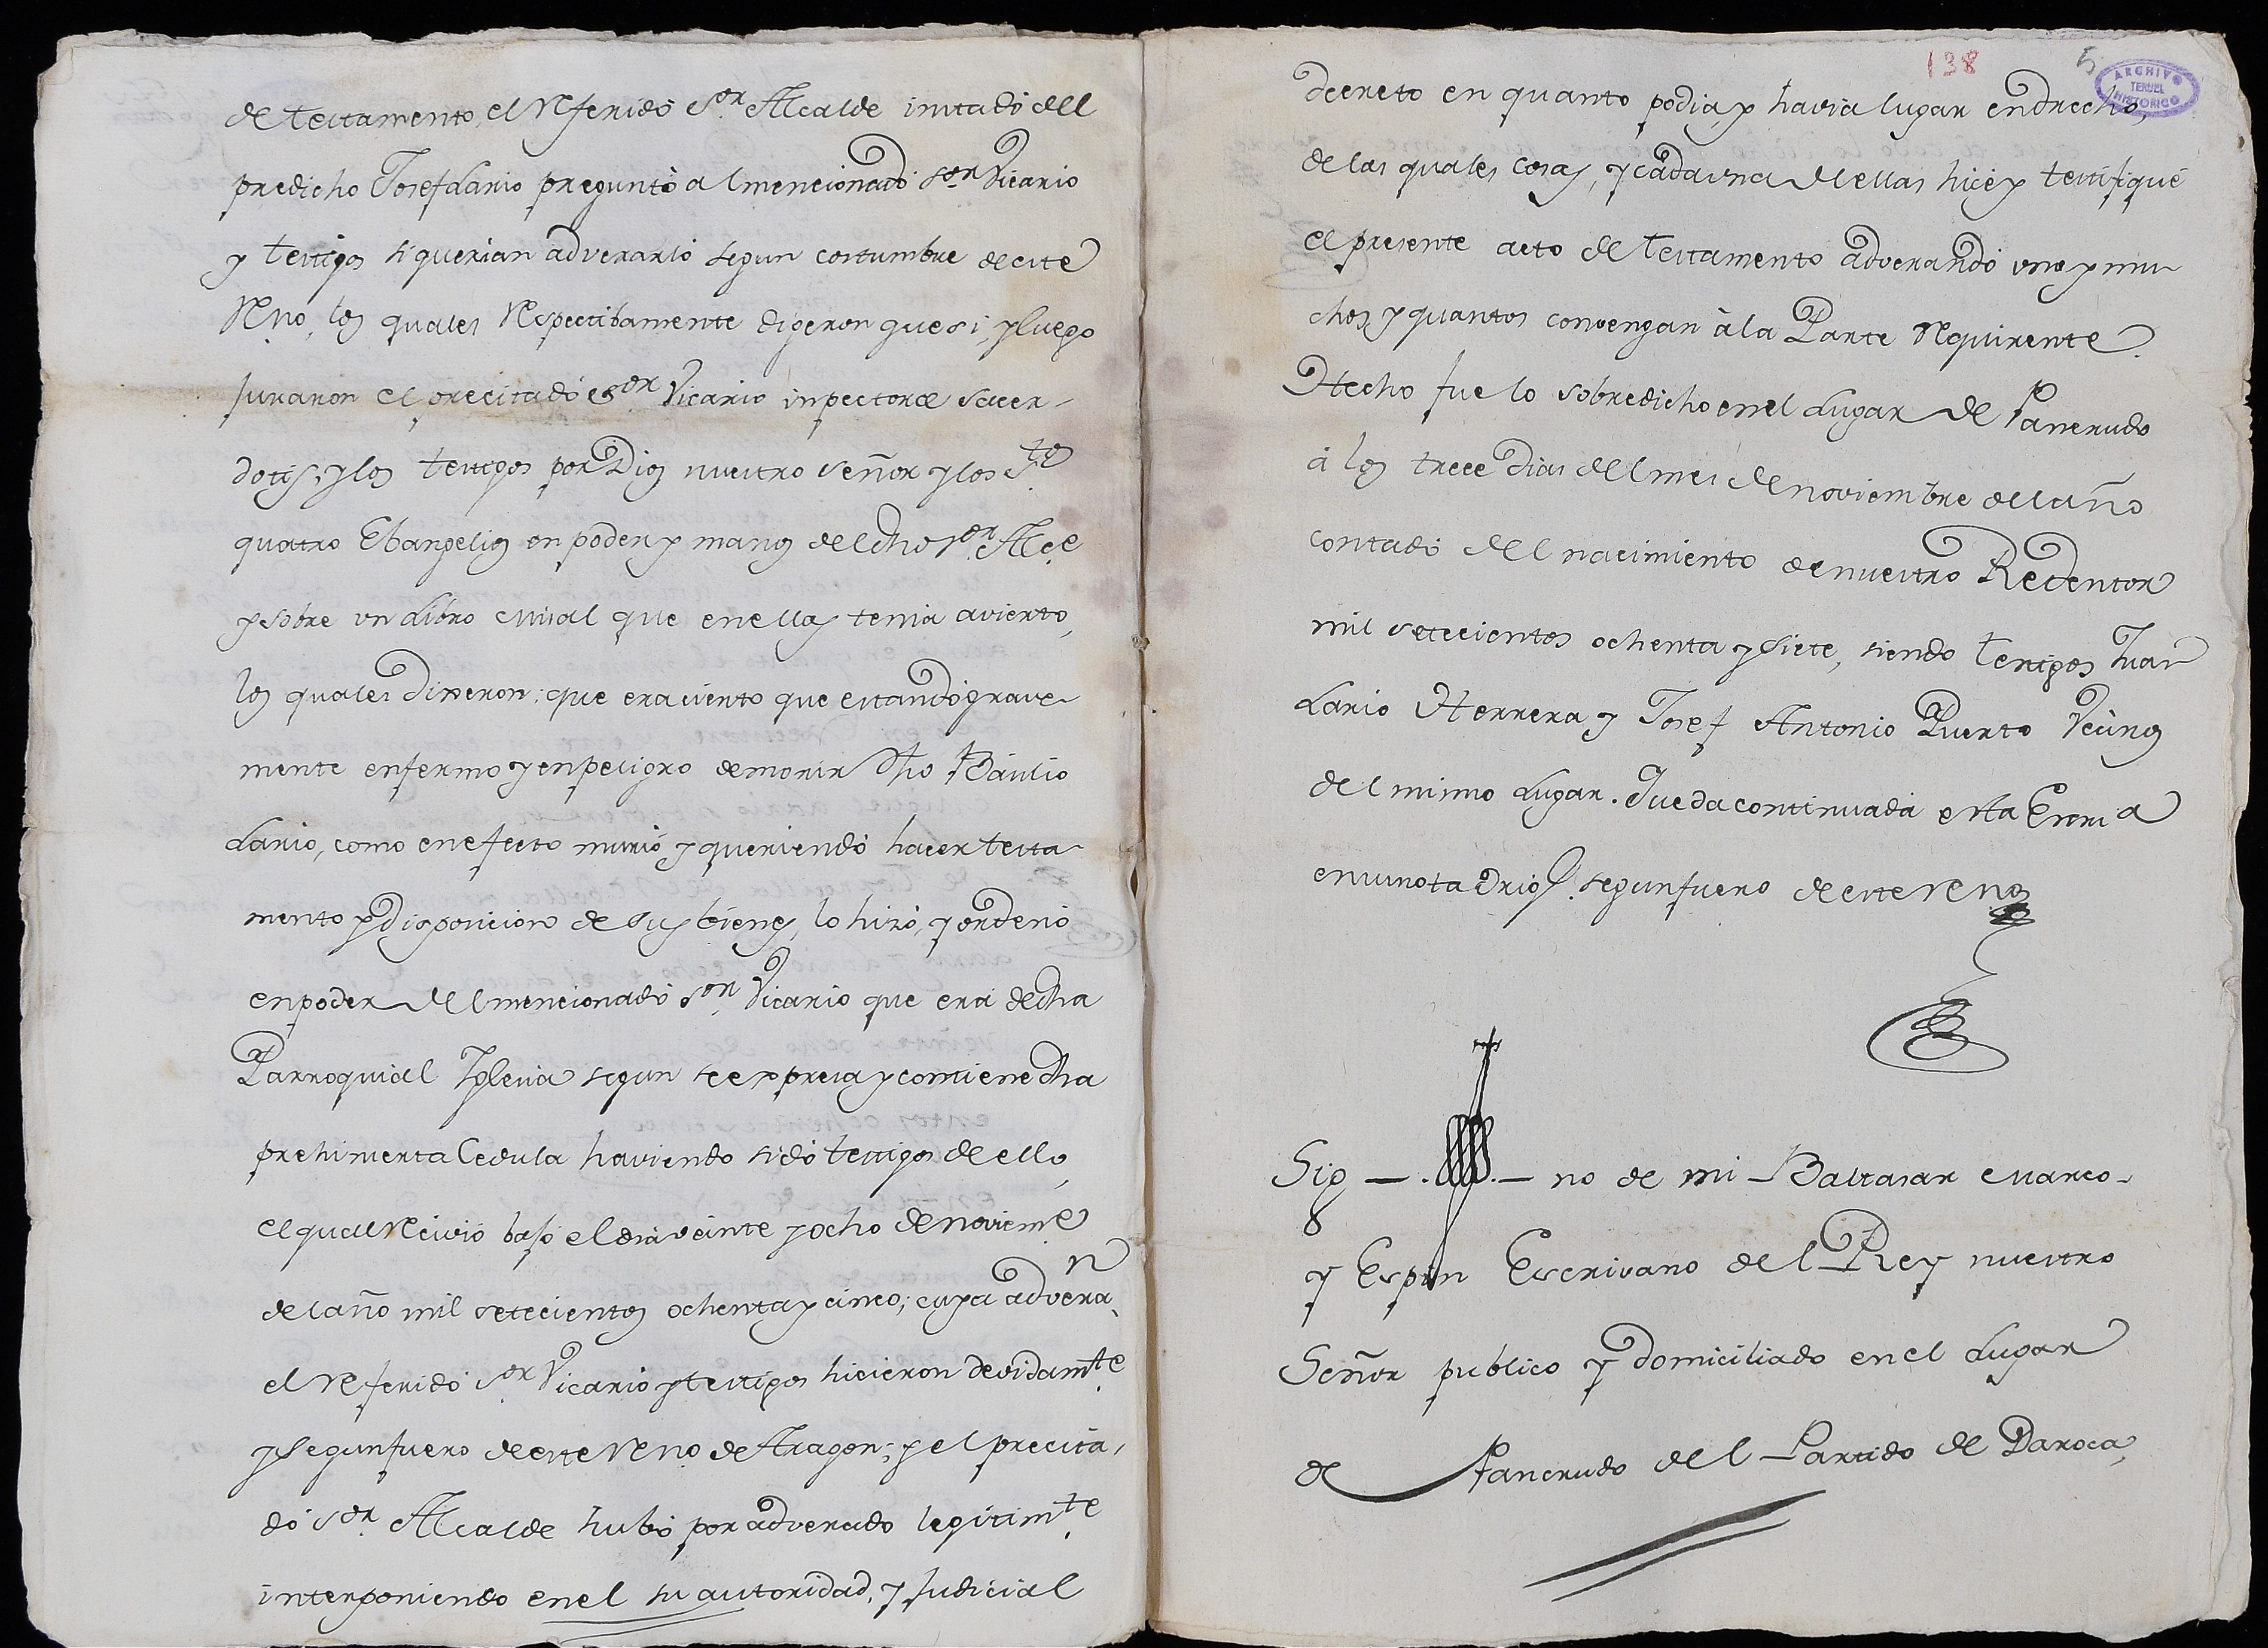 de testamento, el referido Sor. Alcalde instado del
predicho Josef Lario preguntò al mencionado Sor. Vicario
y testigos si querian adverarlo segun costumbre de este
Reno, los quales respectibamente digeron que si, y luego
juraron el precitado Sor. Vicario in pectore sacer-
dotis, y los testigos por Dios nuestro Señor y los Stos
quatro Ebangelios en poder y manos del dho Sor. Alce
y sobre un Libro Misal que en ellas tenia avierto,
los quales dixeron: que era cierto que estando grave-
mente enfermo y en peligro de morir dho Bãulio
Lario, como en efecto murió y queriendo hacer testa-
mento y disposicion de sus bienes, lo hizó, y ordenó
en poder del mencionado Sor. Vicario que era de dha
Parroquial Iglesia segun se expresa y contiene dha
prehinserta Cedula haviendo sido testigos de ello,
el qual recivió bajo el dia veinte y ocho de Noviemе
del año mil setecientos ochenta y cinco; cuya adveran.
el referido Sor. Vicario y testigos hicieron devidamte
y segun fuero de este Reno de Aragon; y el precita-
do Sor. Alcalde hubó por adverado legitimte
interponiendo en el su autoridad, y Judicial
138 5
ARCHIVO
TERUEL
HISTORICO
decreto en quanto podia y havia lugar en drecho,
de las quales cosas, y cada una de ellas hice y testifiqué
el presente acto de testamento adverando uno y mu-
chos y quantos convengan à la Parte requirente.
Hecho fue lo sobredicho en el Lugar de Pancrudo
à los trece dias del mes de noviembre del año
contado del nacimiento de nuestro Redentor
mil setecientos ochenta y siete, siendo testigos Juan
Lario Herrera y Josef Antonio Puerto Vecinos
del mismo Lugar. Queda continuada esta Escria
en su nota Oriɉ. segun fuero de este Reno
Sig — . . — no de mi Baltasar Marco-
y Espin Escrivano del Rey nuestro
Señor publico y domiciliado en el Lugar
de Pancrudo del Partido de Daroca,